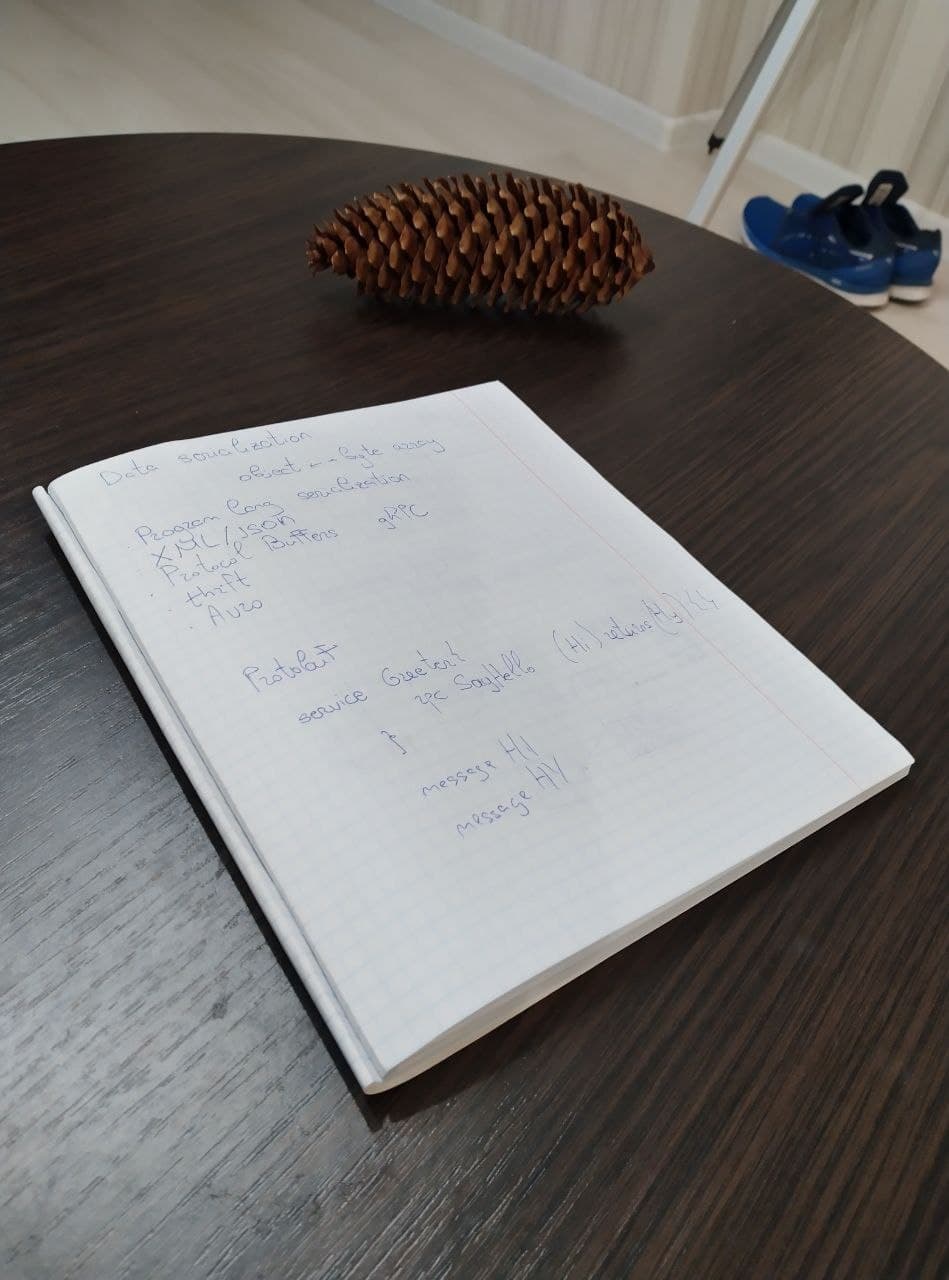 Data serialization
object ←→ byte array
Program lang serialization
· XML/JSON
· Protocol Buffers gRPC
· thrift
· Avro
Protobuf
service Greeter {
rpc SayHello (Hi) returns (Hy) {}
}
message HI
message HY